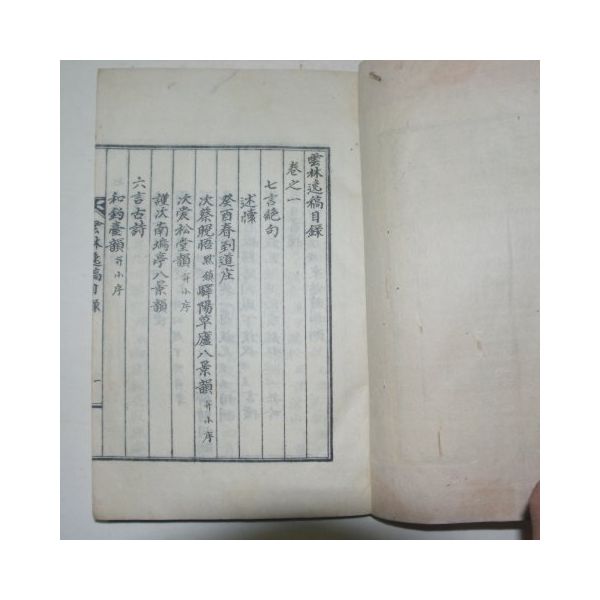 雲林逸稿目錄
卷之一
七言絶句
述懷
癸酉春到道庄
次蔡晩悟 驛陽草廬八景韻 并小序
次愛松堂韻 并小序
謹次南塢亭八景韻
六言古詩
和釣臺韻 并小序
雲林逸稿目錄
一